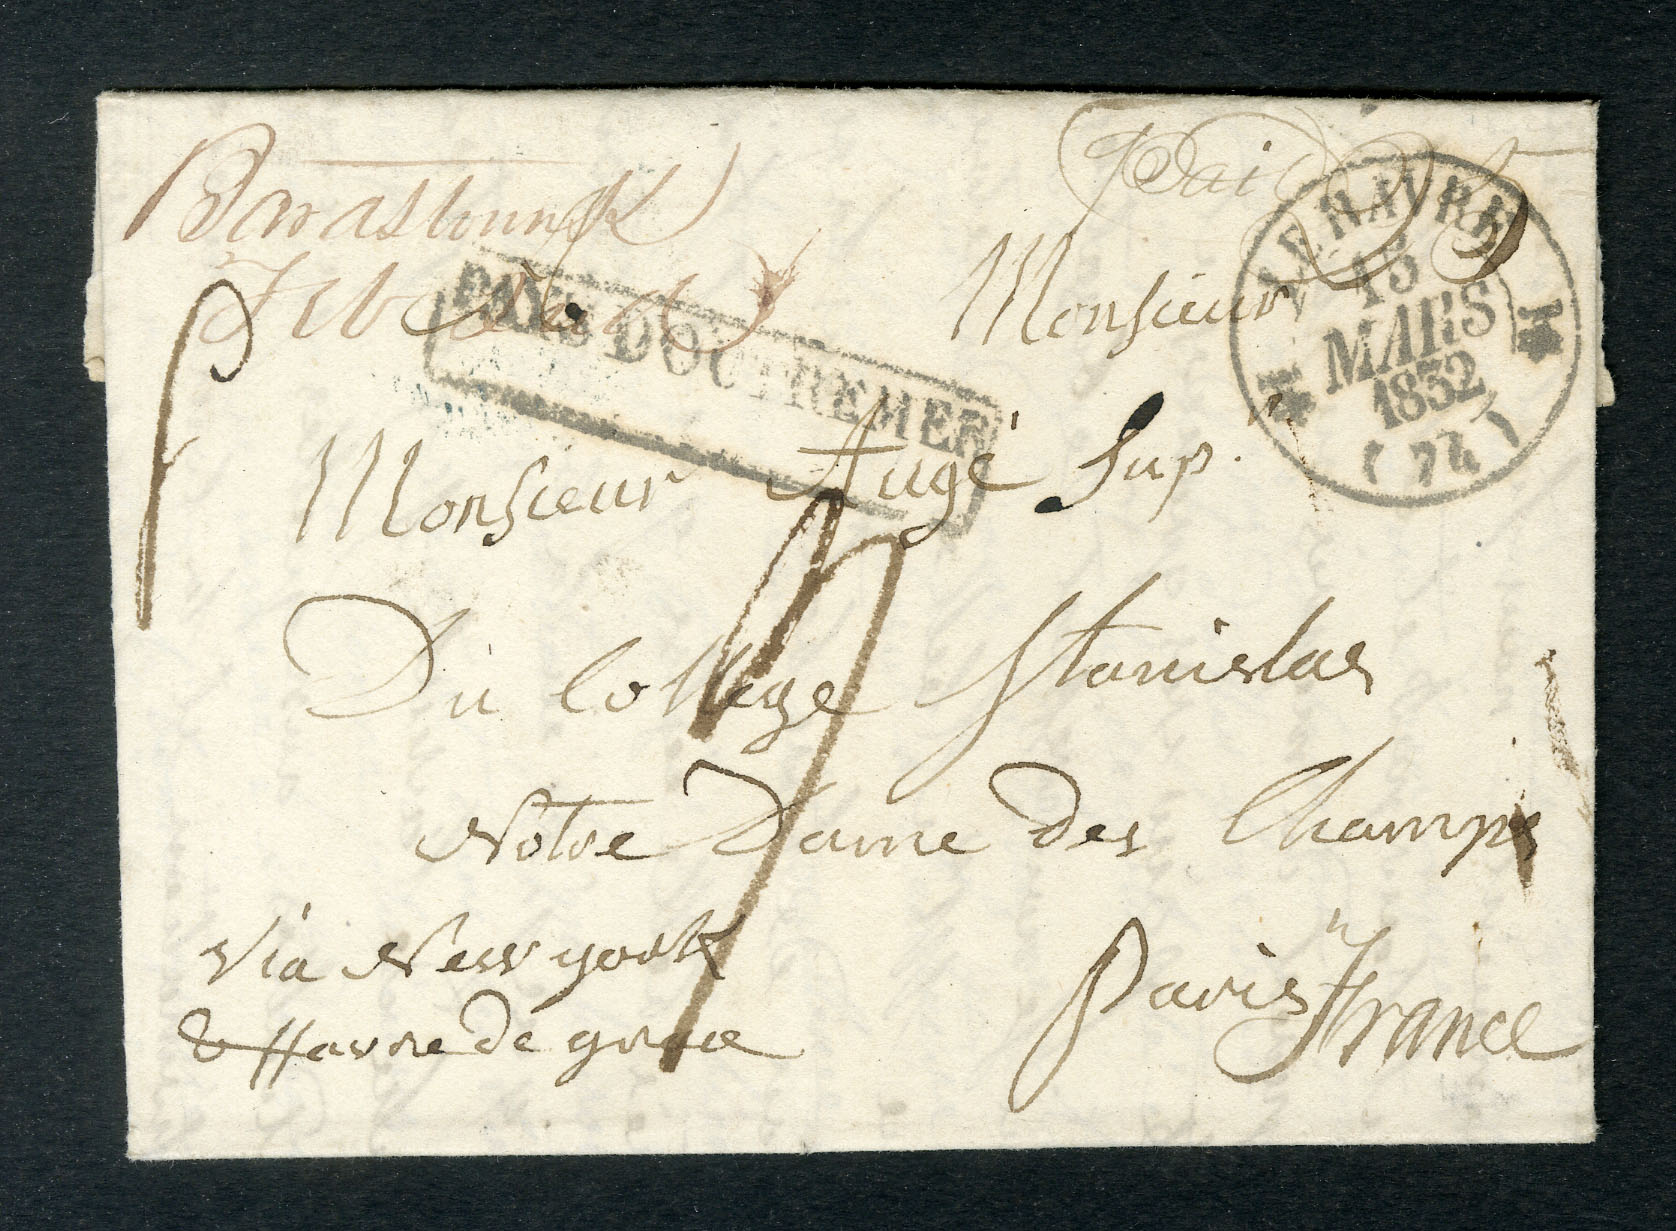 Feb
Paid 25
LE HAVRE
13
MARS
1832
(74)
PAYS D'OUTREMER
Monsieur
Monsieur Augé Sup.r
Du College Stanislas
Notre Dame des Champs
Paris France
Via New york
& Havre de grace